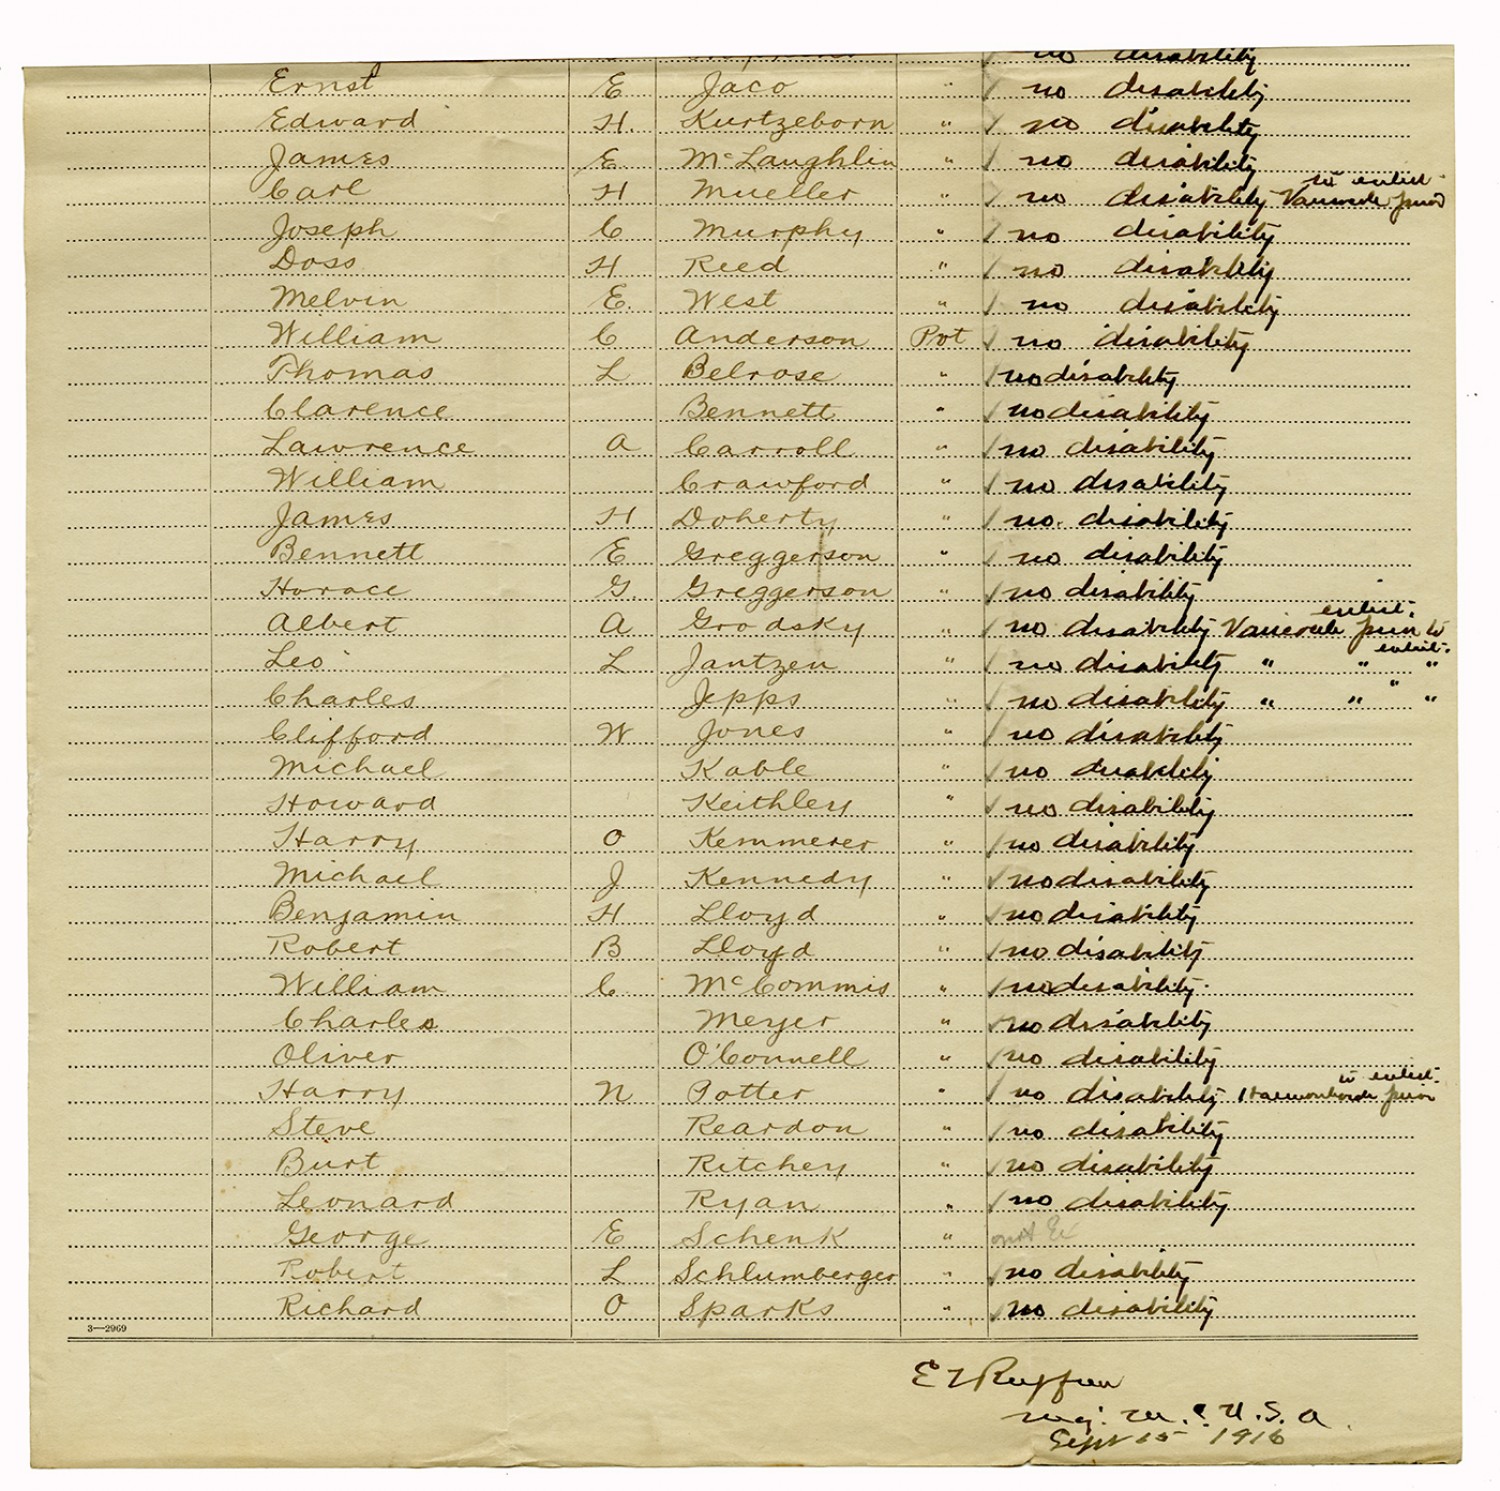 no disability
Ernst E Jaco " no disability
Edward H. Kurtzeborn " no disability
James E McLaughlin " no disability
to enlist.
Carl H Mueller " no disability Varicocele prior
Joseph C Murphy " no disability
Doss H Reed " no disability
Melvin E. West " no disability
William C Anderson Pvt no disability
Thomas L Belrose " no disability
Clarence Bennett " no disability
Lawrence A Carroll " no disability
William Crawford " no disability
James H Doherty " no. disability
Bennett E Greggerson " no disability
Horace G. Greggerson " no disability
enlist.
Albert A Grodsky " no disability Varicocele prior to
enlist.
Leo L Jantzen " no disability " " "
Charles Jepps " no disability " " " "
Clifford W Jones " no disability
Michael Kable " no disability
Howard Keithley " no disability
Harry O Kemmerer " no disability
Michael J Kennedy " no disability
Benjamin H Lloyd " no disability
Robert B Lloyd " no disability
William C McCommis " no disability.
Charles Meyer " no disability
Oliver O'Connell " no disability
to enlist.
Harry N Potter " no disability prior
Steve Reardon " no disability
Burt Ritchey " no disability
Leonard Ryan " no disability
George E Schenk " not Ex
Robert L Schlumberger " no disability
Richard O Sparks " no disability
3—2969
E L Ruffner
Maj. M.C. U.S.A.
Sept 15 1916